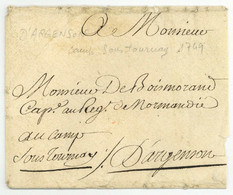 A Monsieur
D'ARGENSON
camp sous Tournay 1744
Monsieur De Boismorand
Cap.e au Reg.t de Normandie
au camp
sous Tournay / Dargenson